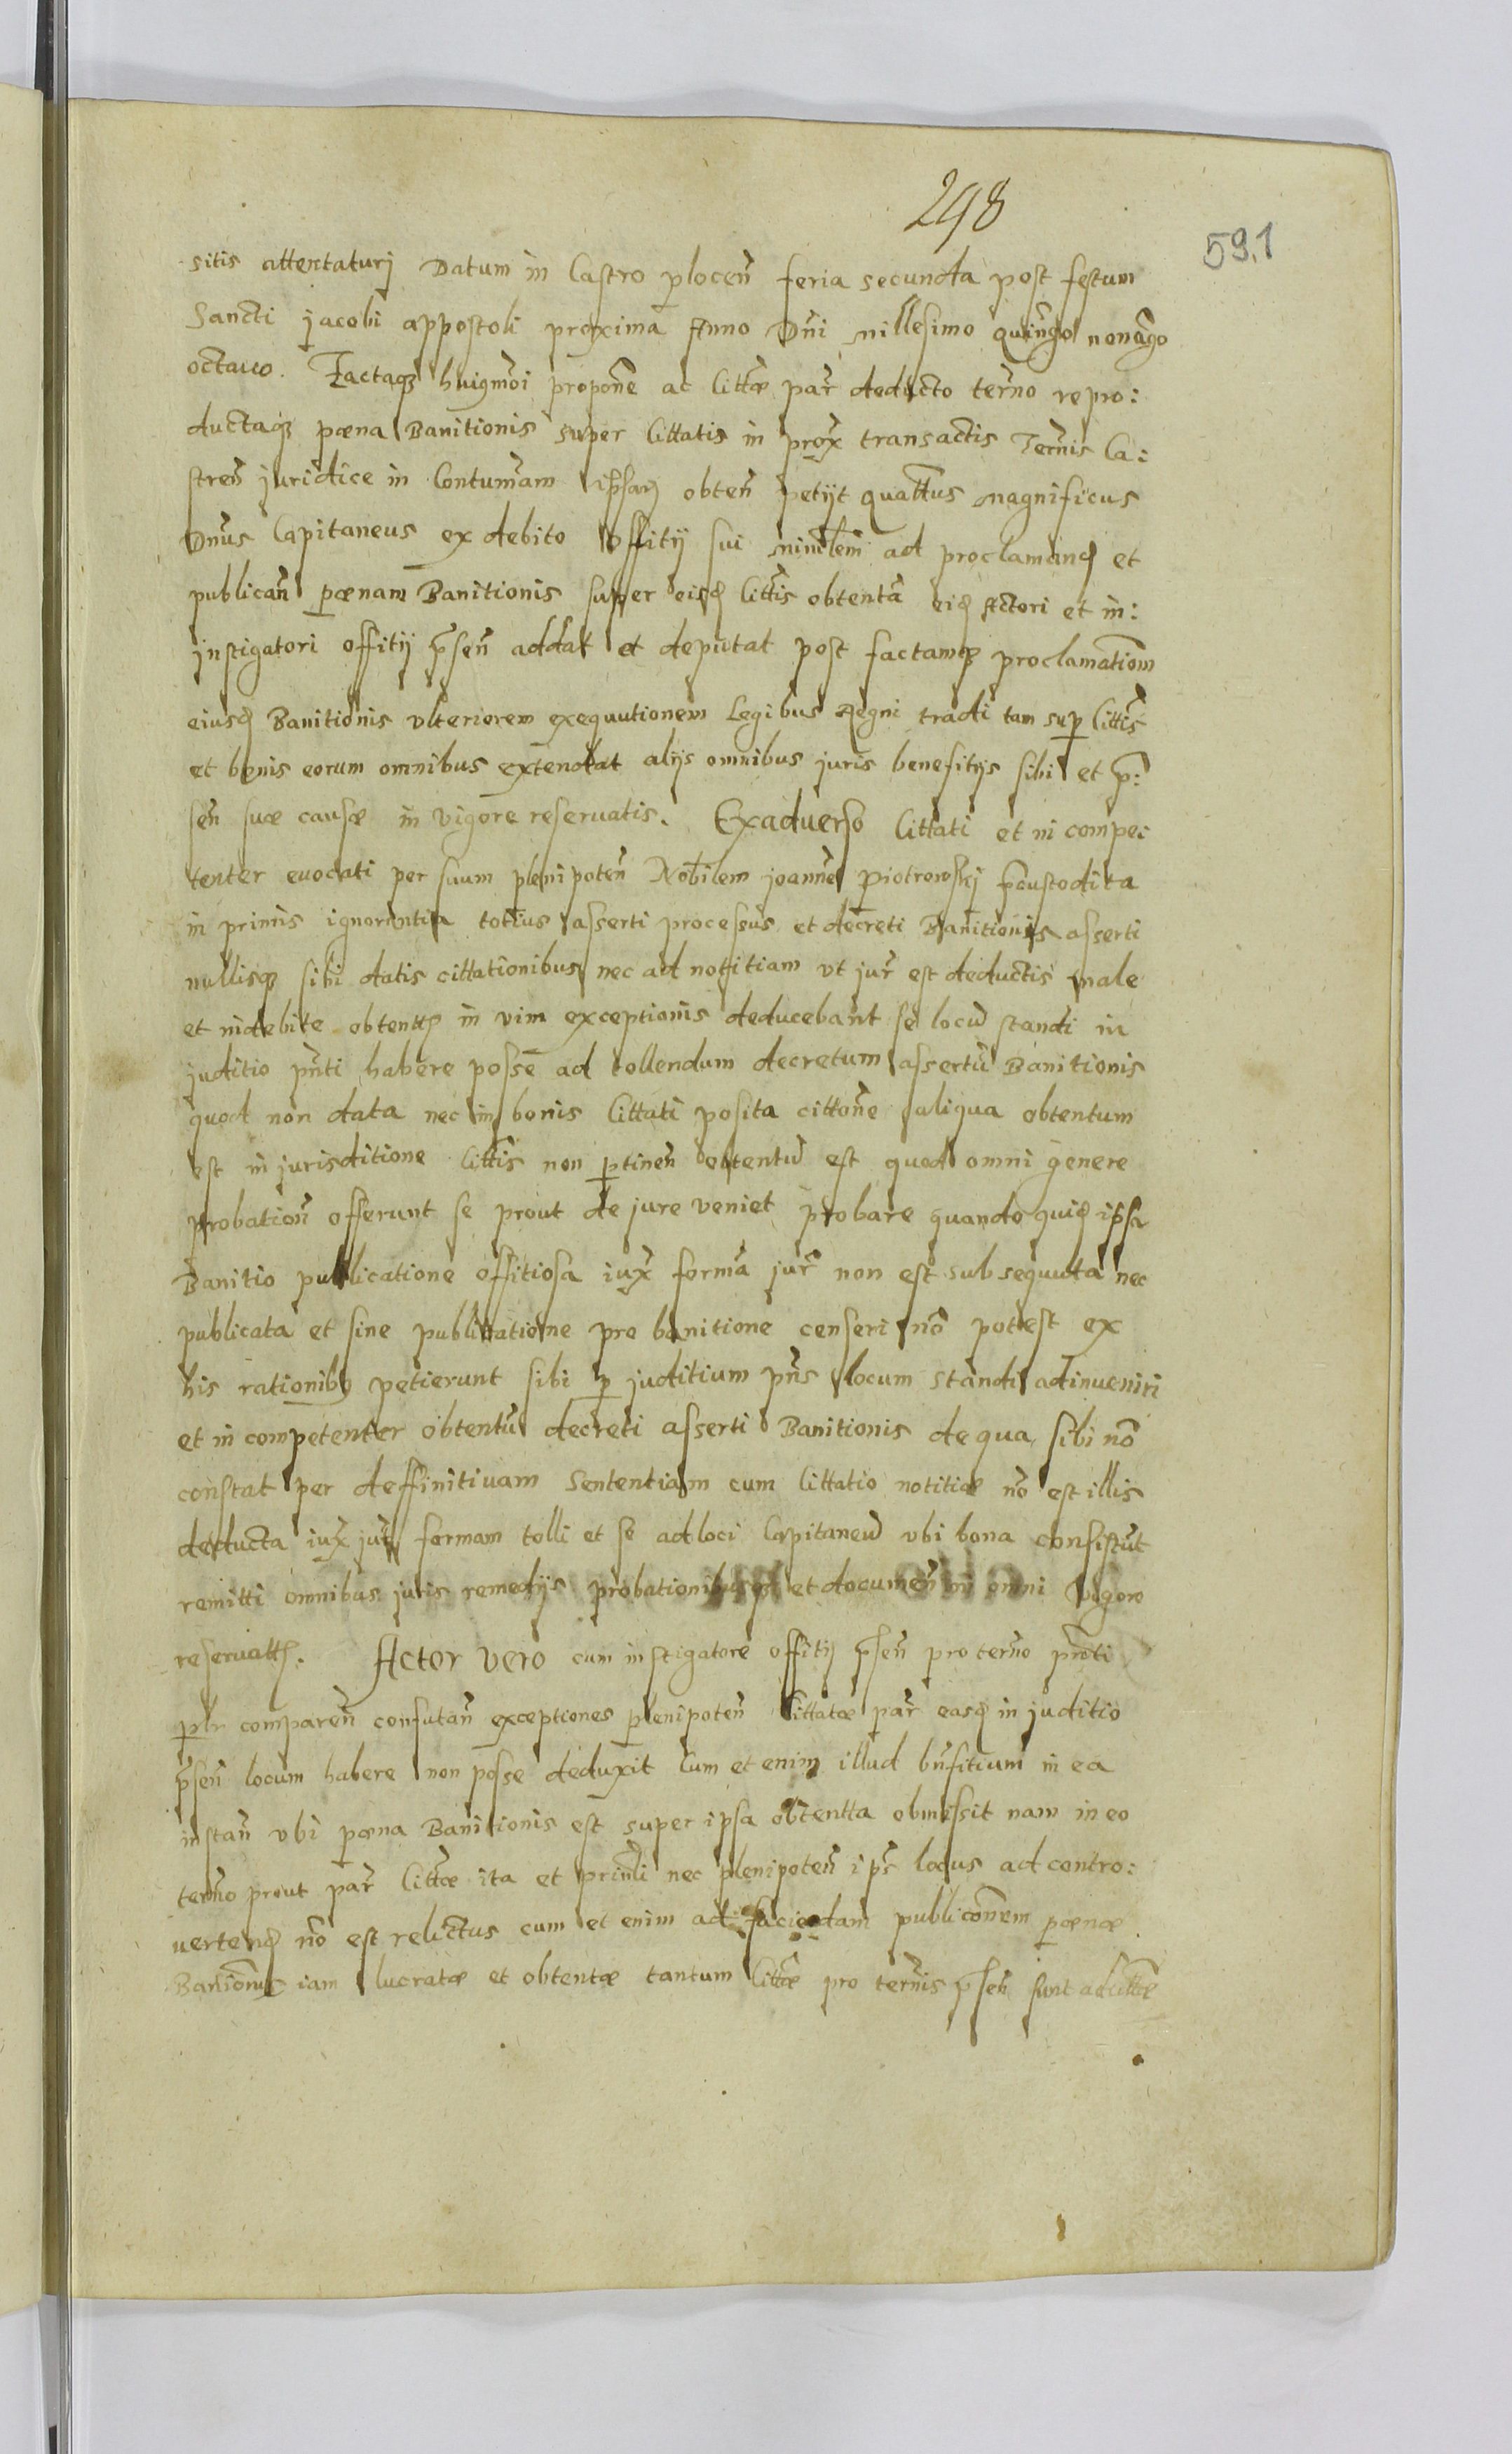 298
591
sitis attentaturj Datum in Castro plocen̄ feria secunda post festum
Sancti jacobi appostoli proxima Anno Dn̄i millesimo quingo nonāgo
octauo. Factaq₃ huiqmōi propōne ac Cittæ par̄ deducto termo repro:
ductaq₃ pœna Banitionis super Cittatis in prox transactis Terminis Ca:
stren̄ juridice in Contumam ipsar obten̄ petijt quattus magnificus
Dn̄us Capitaneus ex debito offitij sui minrlem ad proclamand et
publican̄ pœnam Banitionis super eisd Cittis obtentā eid Actori et in:
jnstigatori offitij p̄sen̄ addat et deputat post factamq₃ proclamationm
eiusd Banitionis vlteriorem exequutionem Legibus Regni tradi tam sup Cittis
et bonis eorum omnibus extendat alijs omnibus juris benefitijs sibi et p̄:
sen̄ suæ causæ in vigore reseruatis. Exaduerso Cittati et in compe:
tenter euocati per suum plenipoten̄ Nobilem joannē Piotrowskj p̄custodita
in primis ignorantia totius asserti processus et decreti Banitionis asserti
nullisq₃ sibi datis cittationibus nec ad notitiam vt jur̄ est deductis male
et indebite obtentt in vim exceptionis deducebant se locū standi in
juditio pn̄ti habere posse ad tollendum decretum assertū Banitionis
quod non data nec in bonis Cittati posita cittōne aliqua obtentum
est in jurisditione Cittis non ptinen̄ obtentū est quod omni genere
probation̄ offerunt se prout de jure veniet probare quando quid ipsa
Banitio publicatione offitiosa iux formā jur̄ non est subsequuta nec
publicata et sine publicatione pro banitione censeri nō potest ex
his rationibq petierunt sibi p juditium pn̄s locum standi adinueniri
et in competenter obtentū decreti asserti Banitionis de qua sibi nō
constat per deffinitiuam Sententiam cum Cittatio notitiæ nō est illis
deducta iux jur̄ formam tolli et se ad loci Capitaneū vbi bona consistūt
remitti omnibus juris remedijs probationibusq₃ et documen̄ in omni vigore
reseruatt. Actor vero cum instigatore offitij p̄sen̄ pro termo pn̄ti
plr comparen̄ confutan̄ exceptiones plenipoten̄ Cittatæ par̄ easd in juditio
p̄sen̄ locum habere non posse deduxit Cum et enim illud bn̄fitium in ea
instan̄ vbi pœna Banitionis est super ipsa obtentta obmissit nam in eo
termo prout par̄ Cittæ ita et prin̄li nec plenipoten̄ ips locus ad contro:
uertend nō est relictus cum et enim ad faciendam publicōnem pœnæ
Baniōnis iam lucratæ et obtentæ tantum Cittæ pro terminis p̄sen̄ sunt